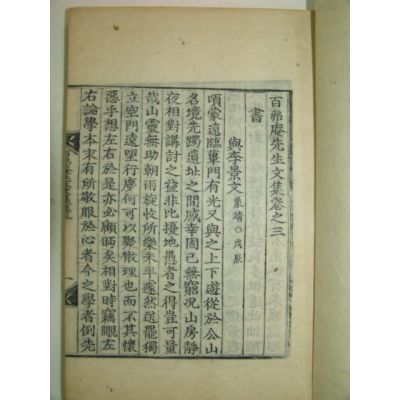 百弗庵先生文集卷之三
書
與李景文 象靖○戊辰
頃蒙遠臨蓽門有光又與之上下遊從於公山
名境先躅遺址之間感幸固已無窮況山房靜
夜相對講討之益非比擾地愚者之得豈可量
哉山靈無助朝雨旋收所樂未半遽然送罷獨
立空門遠望行塵何可以聚散理也而不其懷
惡乎想左右於是亦必顧眄矣相對時竊覸左
右論學本末有所敬服於心者今之學者例先